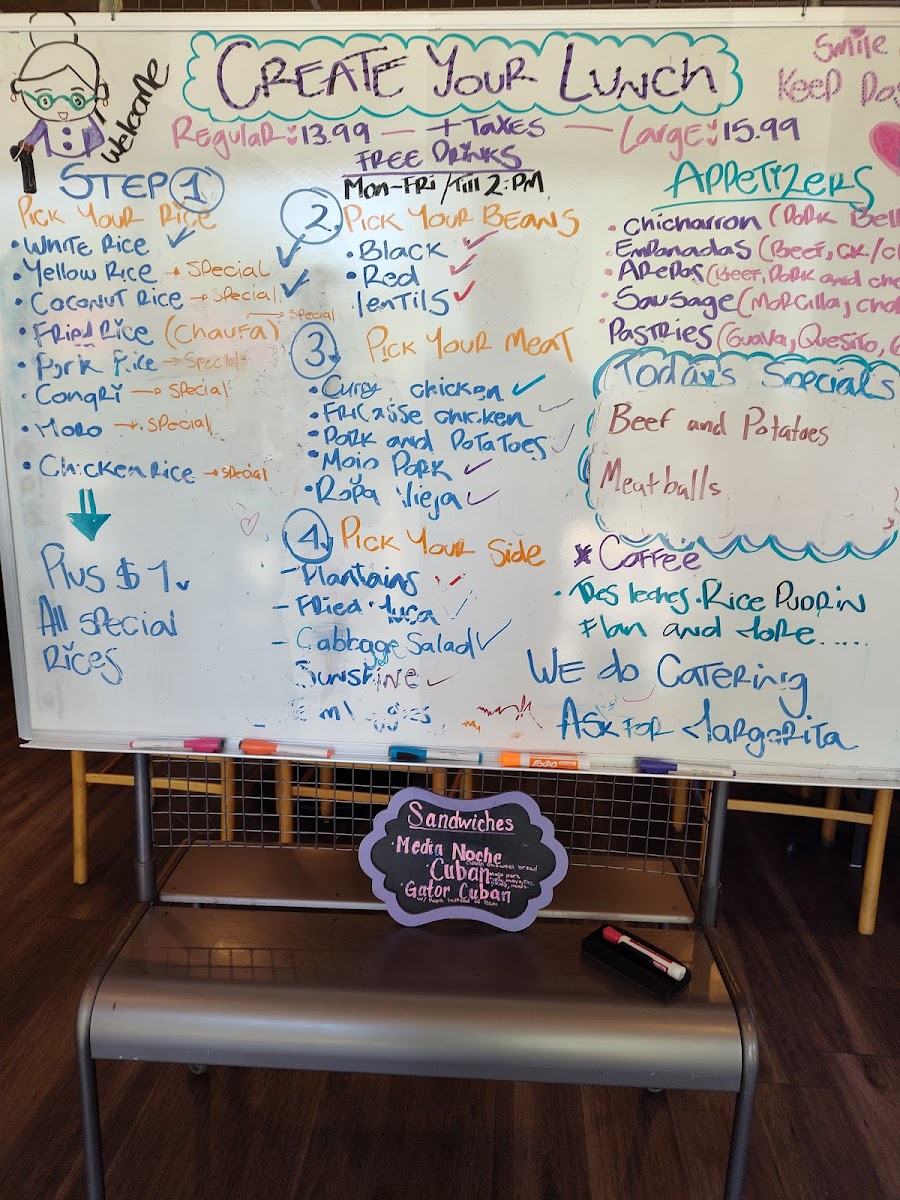 Welcome
CREATE YOUR LUNCH
Smile
KEEP
REGULAR 13.99 — + TAXES — LARGE 15.99
FREE DRINKS
MON-FRI / Till 2:PM
STEP 1
PICK YOUR RICE
• WHITE RICE
• Yellow RICE → SPECIAL
• COCONUT RICE → SPECIAL
• FRIED RICE (CHAUFA) → SPECIAL
• PORK RICE → SPECIAL
• CONGRI → SPECIAL
• MORO → SPECIAL
• CHICKEN RICE → SPECIAL
Plus $1
All SPECIAL
RICES
2. PICK YOUR BEANS
• Black
• Red
lENTILS
3 PICK YOUR MEAT
• CURRY CHICKEN
• FRICASSE CHICKEN
• PORK AND POTATOES
• MOJO PORK
• ROPA VIEJA
4. PICK YOUR SIDE
- Plantains
- FRIED YUCA
- CABBAGE SALAD
SUNSHINE
APPETIZERS
• CHICHARRON (PORK
EMPANADAS (BEEF, CK/
• AREPAS (BEEF, PORK and
• SAUSAGE (MORCILLA,
PASTRIES (GUAVA, QUESITO,
Today's Specials
Beef and Potatoes
Meatballs
* COFFEE
• TRES leches • RICE PUDDIN
Flan and More.....
WE do CATERING
ASK FOR MARGARITA
EXPO
Sandwiches
• Media Noche
• Cuban
• Gator Cuban